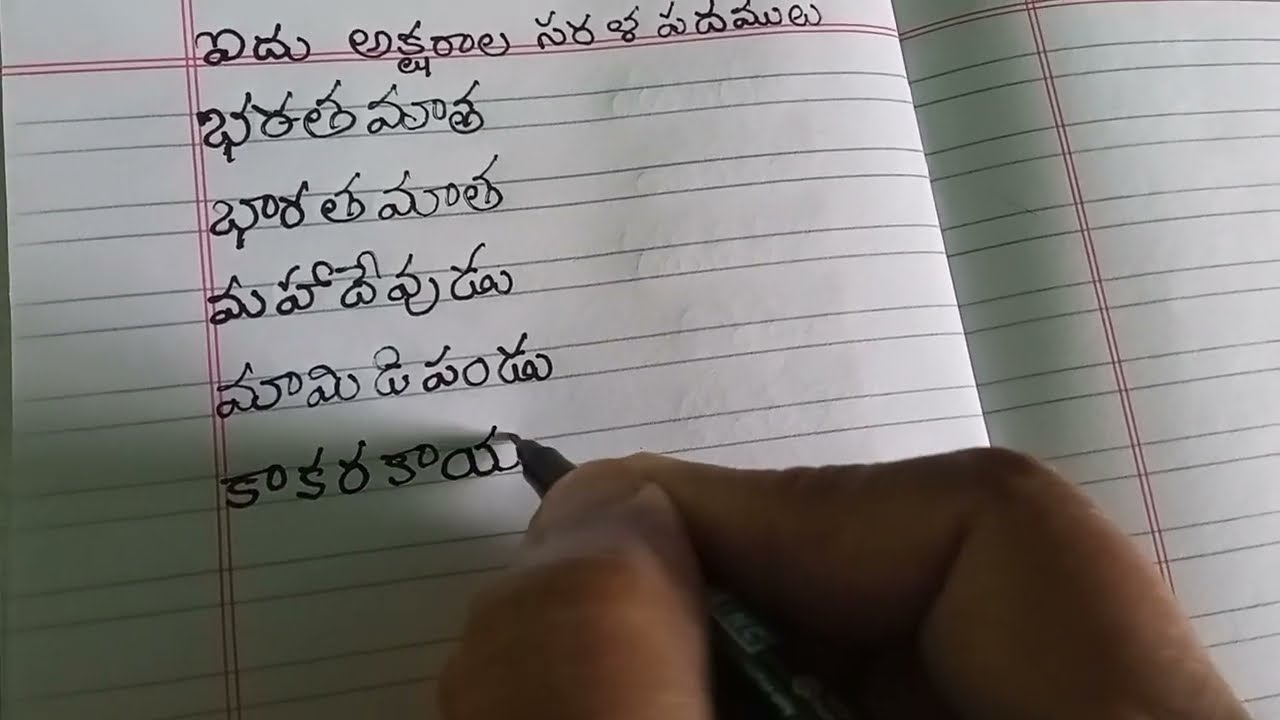 ఐదు అక్షరాల సరళ పదములు
భరతమాత
భారతమాత
మహాదేవుడు
మామిడిపండు
కాకరకాయ